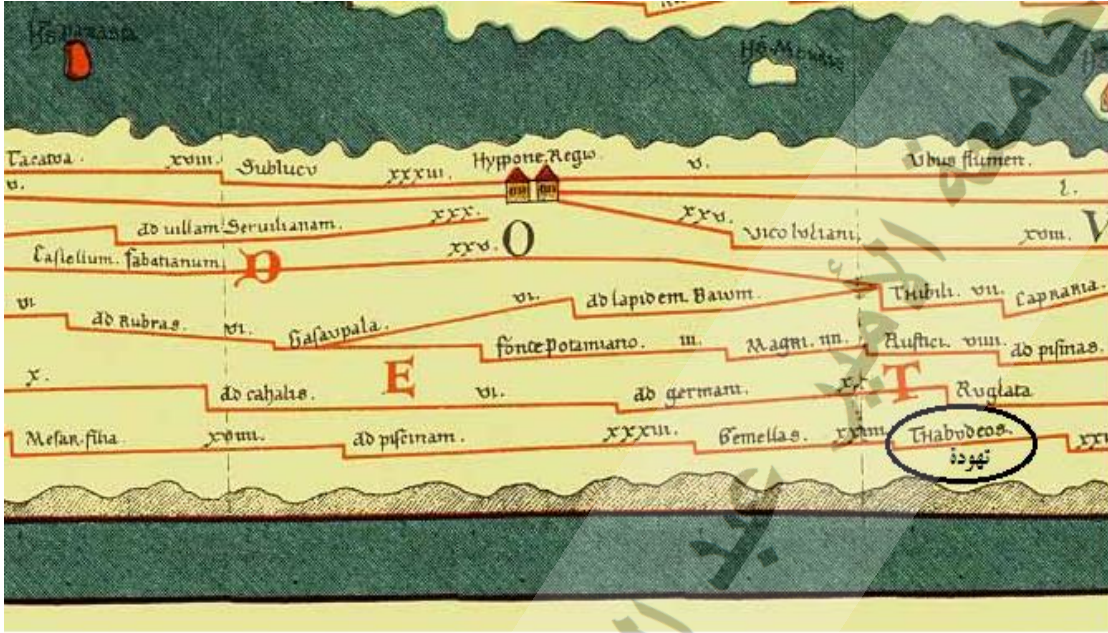 Tacatva. xviii. Sublucu xxxiii. Hyppone Regio v. Vbus flumen.
v. l.
ad villam Seruilianam. xxx. xxv. vico Iuliani xviii. V
Castellum fabatianum xxv. O
vi ad Rubras. vi. Gasaupala. vi. ad lapidem Baium. Thibili. vii. Capraria.
fonte potamiano. iii. Magri. iiii. Rustici. viiii. ad piscinas.
x. ad cahalis. E vi. ad germani. x. T Ruglata
Mesar filia xviiii. ad piscinam. xxxiii. Gemellas. Thabudeos.
تهودة
جامعة الأمير عبد